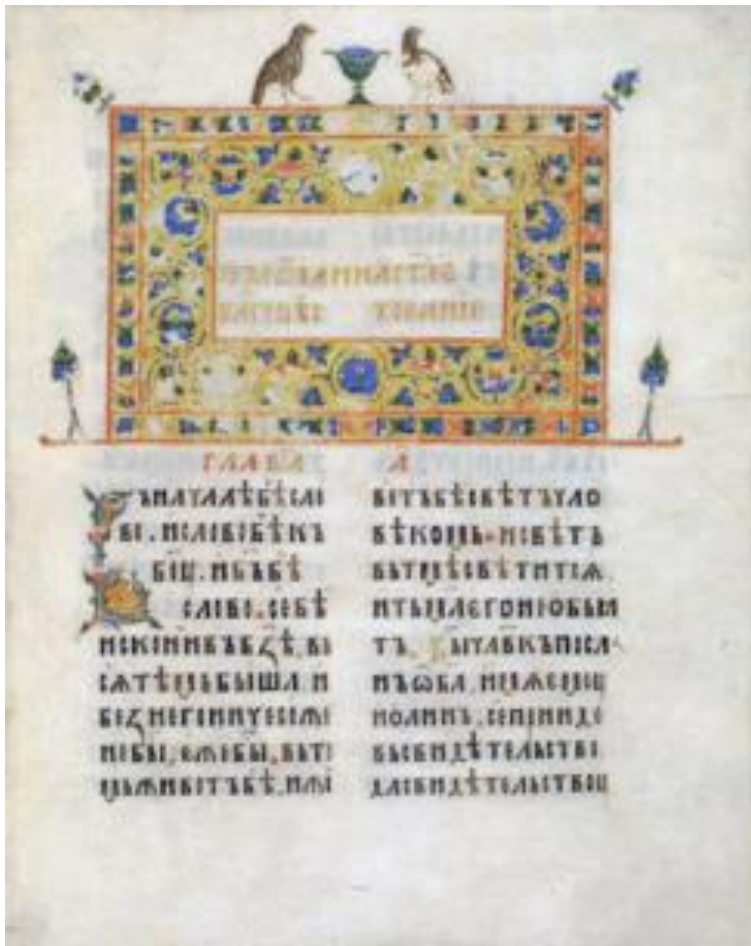 ГЛАВА А
ЪНАЧАЛѢБѢСЛО
ВО.ИСЛОВОБѢКЪ
БОУ.ИБЪБѢ
СЛОВО.СЕБѢ
ИСКОНИВЪБЗѢ.ВЬ
СѦТѢМЬБЫША.И
БЕЗНЕГОНИЧЕСОЖЕ
НЕБЫ,ЕЖЕБЫ.ВЬТО
МЬЖИВОТЪБѢ.ИЖИ
ВОТЪБѢСВѢТЪЧЛО
ВѢКОМЬ.ИСВѢТЪ
ВЬТЬМѢСВѢТИТСѦ.
ИТЬМАЕГОНЕОБЫМ
ТЪ. БЫЧЛВКЪПОСЛА
НЪѾБА.ИМѦЕМОУ
ИОАНЪ.СЕПРИИДЕ
ВЬСВИДѢТЕЛЬСТВО.
ДАСВИДѢТЕЛЬСТВОУ